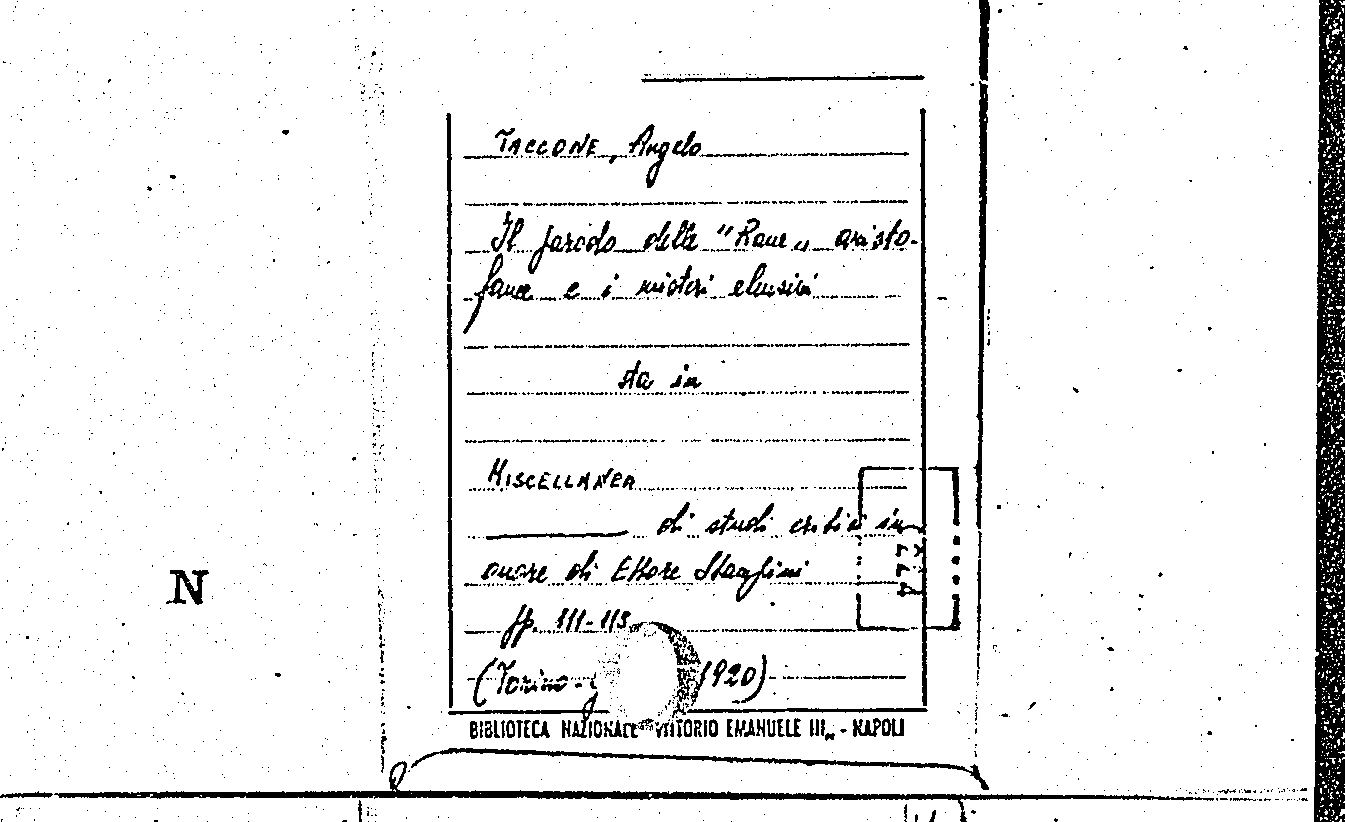 TACCONE, Angelo
Il parodo delle "Rane„ aristo-
fanee e i misteri eleusini
sta in
MISCELLANEA
di studi critici in
onore di Ettore Stampini
pp. 111-113
(Torino- 1920)
BIBLIOTECA NAZIONALE "VITTORIO EMANUELE III„ - NAPOLI
N